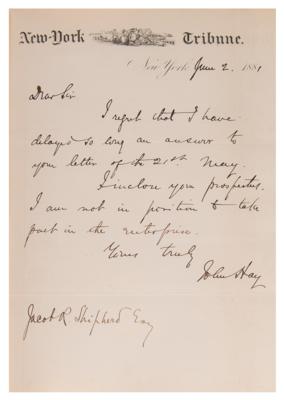 New-York Tribune.
New York June 2. 1881
Dear Sir
I regret that I have
delayed so long an answer to
your letter of the 21st May.
I inclose your prospectus.
I am not in position to take
part in the enterprise.
Yours truly
John Hay
Jacob R Shipherd Esq